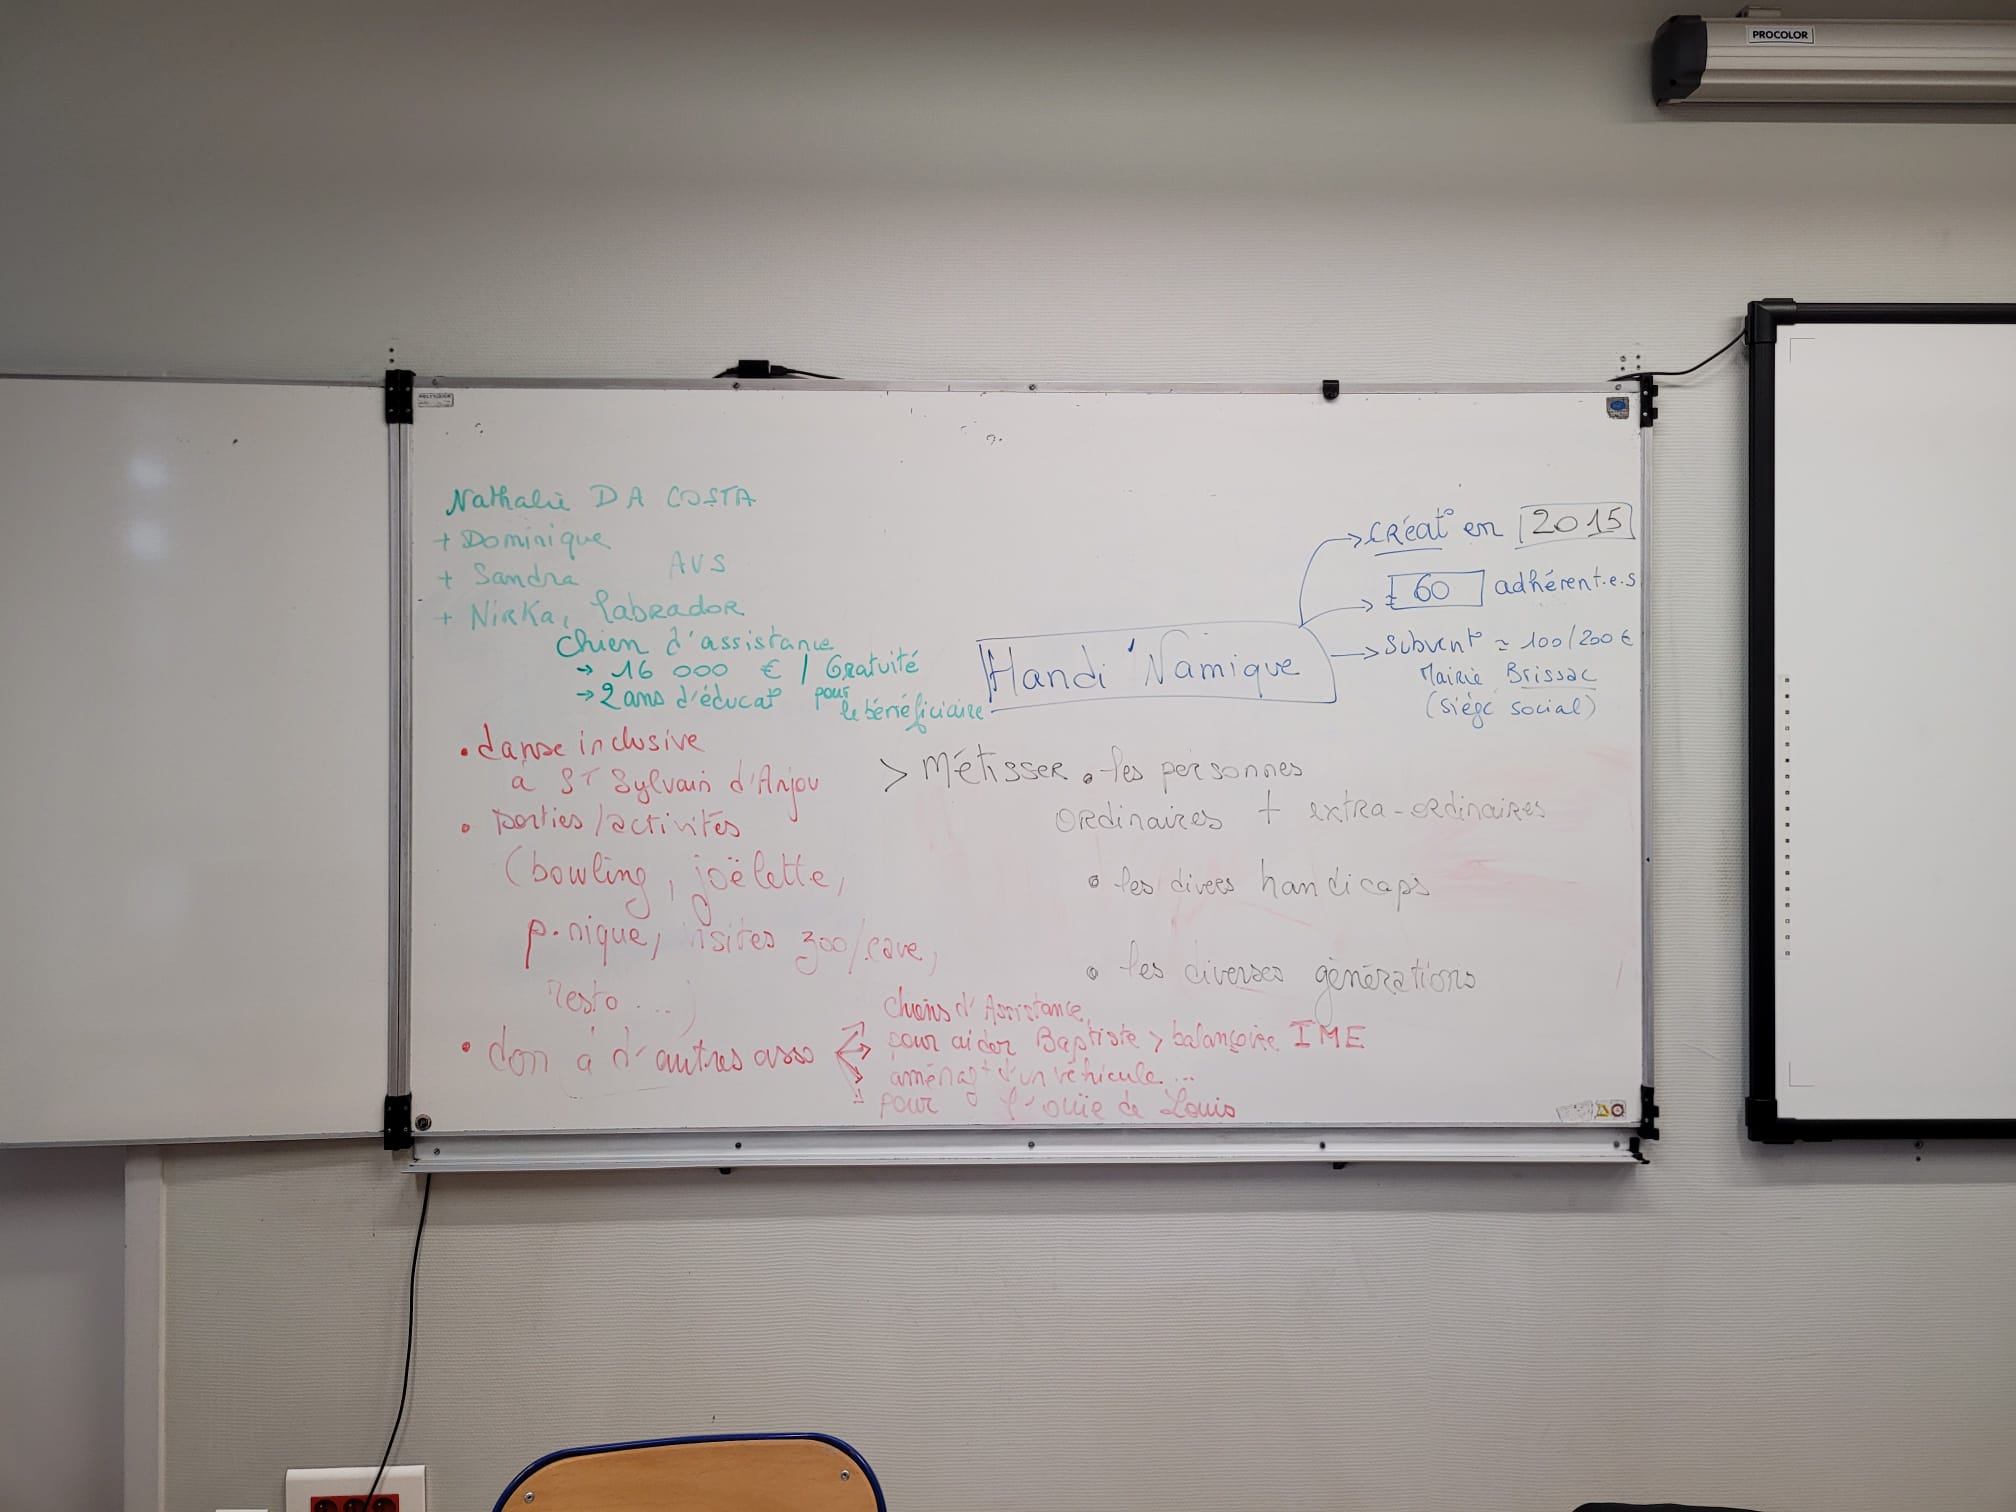 PROCOLOR
Nathalie DA COSTA
+ Dominique
+ Sandra AVS
+ Nirka, Labrador
chien d'assistance
→ 16 000 € / Gratuité
→ 2 ans d'éducat° pour
le bénéficiaire
Handi'Namique
→ Créat° en 2015
→ 60 adhérent.e.s
→ Subvent° ≈ 100/200 €
Mairie Brissac
(siège social)
• danse inclusive
à ST Sylvain d'Anjou
• sorties/activités
(bowling, joëlette,
p.nique, visites zoo/cave,
resto ...)
• don à d'autres asso
chiens d'Assistance,
pour aider Baptiste > balançoire IME
aménagt d'un véhicule...
pour l'ouïe de Louis
> Métisser • les personnes
ordinaires + extra-ordinaires
• les divers handicaps
• les diverses générations